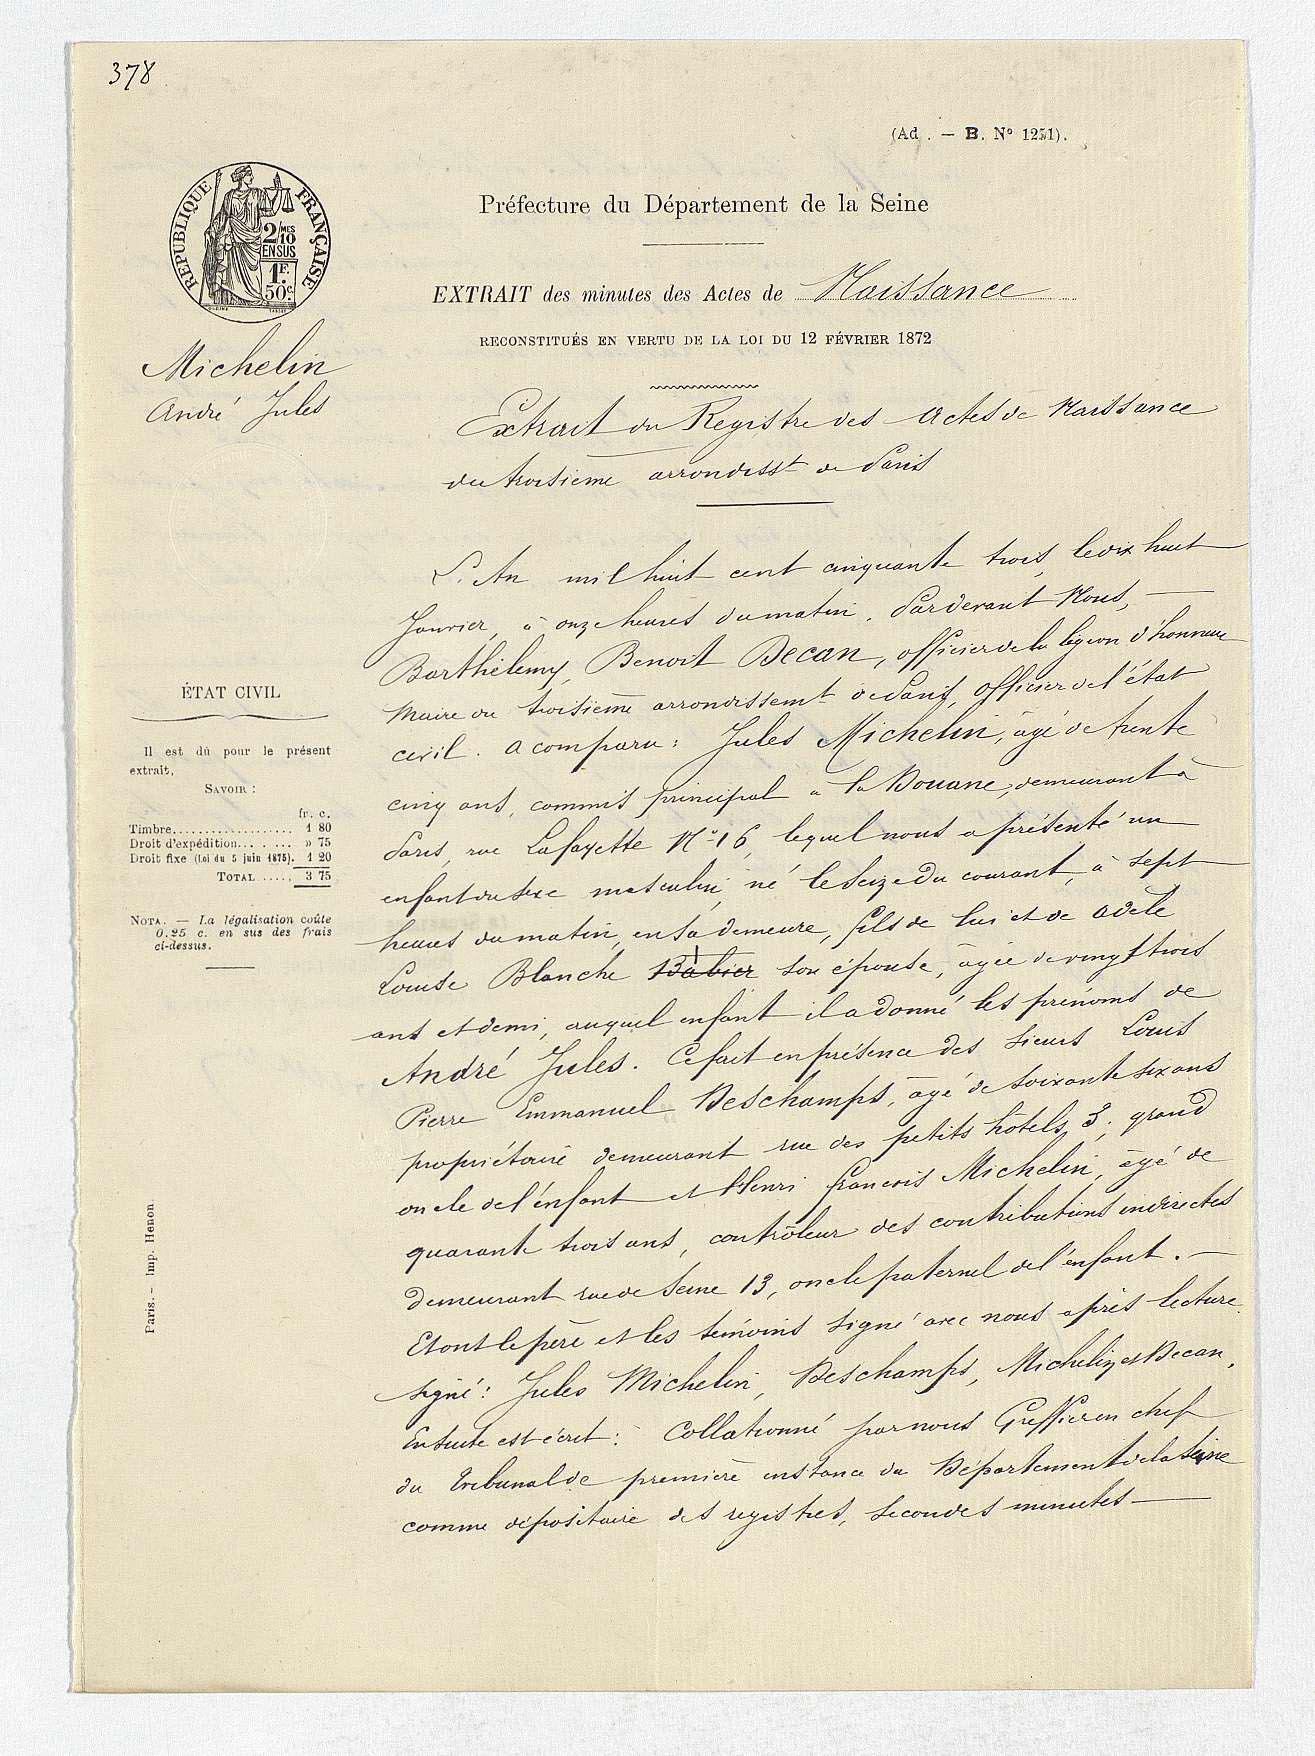 378
(Ad . — B. Nº 1251).
RÉPUBLIQUE FRANÇAISE
2/MES
10
EN SUS
1F.
50c.
Préfecture du Département de la Seine
EXTRAIT des minutes des Actes de Naissance
RECONSTITUÉS EN VERTU DE LA LOI DU 12 FÉVRIER 1872
Michelin
André Jules
Extrait du Registre des Actes de Naissance
du troisième arrondisst de Paris
L'An mil huit cent cinquante trois, le dix huit
Janvier, à onze heures du matin. Pardevant Nous, —
Barthélemy, Benoit Decan, officier de la légion d'honneur
Maire du troisième arrondissemt de Paris, officier de l'état
civil. a comparu : Jules Michelin, âgé de trente
cinq ans, commis principal à la Douane, demeurant à
Paris, rue Lafayette Nº 16, lequel nous a présenté un
enfant du sexe masculin, né le seize du courant, à sept
heures du matin, en sa demeure, fils de lui et de Adèle
Louise Blanche Babier son épouse, âgée de vingt trois
ans et demi, auquel enfant il a donné les prénoms de
André Jules. Ce fait en présence des sieurs Louis
Pierre Emmanuel Deschamps, âgé de soixante six ans
propriétaire demeurant rue des petits hôtels 3, grand
oncle de l'enfant et Henri françois Michelin, âgé de
quarante trois ans, contrôleur des contributions indirectes
demeurant rue de Seine 13, oncle paternel de l'enfant. —
Et ont le père et les témoins signé avec nous après lecture.
signé : Jules Michelin, Deschamps, Michelin et Decan,
Ensuite est écrit : Collationné par nous Greffier en chef
du tribunal de première instance du Département de la Seine
comme dépositaire des registres, secondes minutes —
ÉTAT CIVIL
Il est dû pour le présent
extrait,
SAVOIR :
fr. c.
Timbre.................. 1 80
Droit d'expédition........ » 75
Droit fixe (Loi du 5 juin 1875). 1 20
TOTAL ..... 3 75
NOTA. — La légalisation coûte
0.25 c. en sus des frais
ci-dessus.
Paris. — Imp. Henon